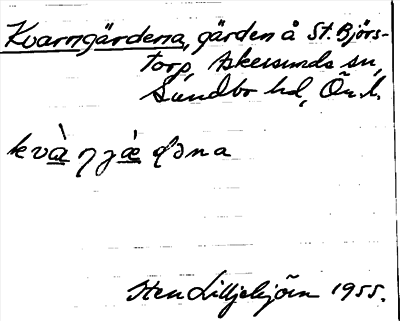 Kvarngärdena, gärden å St. Björs-
torp, Askersunds sn,
Sundbo hd, Ör. l.
kvàŋjæ̀ḍəna
Sten Lilljebjörn 1955.